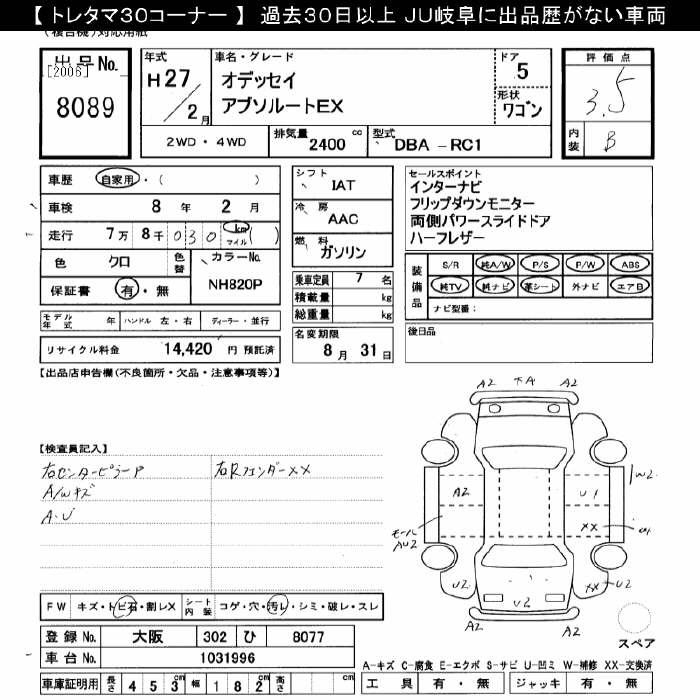 【 トレタマ30コーナー 】 過去30日以上 JU岐阜に出品歴がない車両
(複合機)対応用紙
出品No.
[2006]
8089
年式
H27
2月
車名・グレード
オデッセイ
アブソルートEX
ドア
5
形状
ワゴン
2WD・4WD
排気量
2400 cc
型式
DBA -RC1
評価点
3.5
内装
B
車歴 自家用・( )
車検 8年 2月
走行 7万 8千 030 km マイル ( )
色 クロ
色替
カラーNo.
NH820P
保証書 有・無
シフト
IAT
冷房
AAC
燃料
ガソリン
乗車定員 7 名
積載量 kg
総重量 kg
名変期限
8月 31日
セールスポイント
インターナビ
フリップダウンモニター
両側パワースライドドア
ハーフレザー
装備品
S/R 純A/W P/S P/W ABS
純TV 純ナビ 革シート 外ナビ エアB
ナビ型番:
後日品
モデル年式 年 ハンドル 左・右 ディーラー・並行
リサイクル料金 14,420 円 預託済
【出品店申告欄(不良箇所・欠品・注意事項等)】
【検査員記入】
右センターピラーP
A/Wキズ
A・U
右Rフェンダー××
A2 下A A2
W2
A2
U1
モール
AU2
××
U2
U2
××U2
A2
A2
スペア
FW キズ・トビ石・割レX
シート内装 コゲ・穴・汚レ・シミ・破レ・スレ
登録No. 大阪 302 ひ 8077
車台No. 1031996
A-キズ C-腐食 E-エクボ S-サビ U-凹ミ W-補修 XX-交換済
車庫証明用 長さ 453 cm 幅 182 cm 高さ
工具 有・無 ジャッキ 有・無